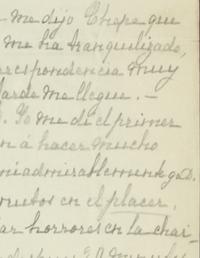 - me dijo Chepe que
me ha tranquilizado,
respondencia muy
tarde me llegue. -
Yo me di el primer
n á hacer mucho
admirablemente
en el placer.
ar horrores en la